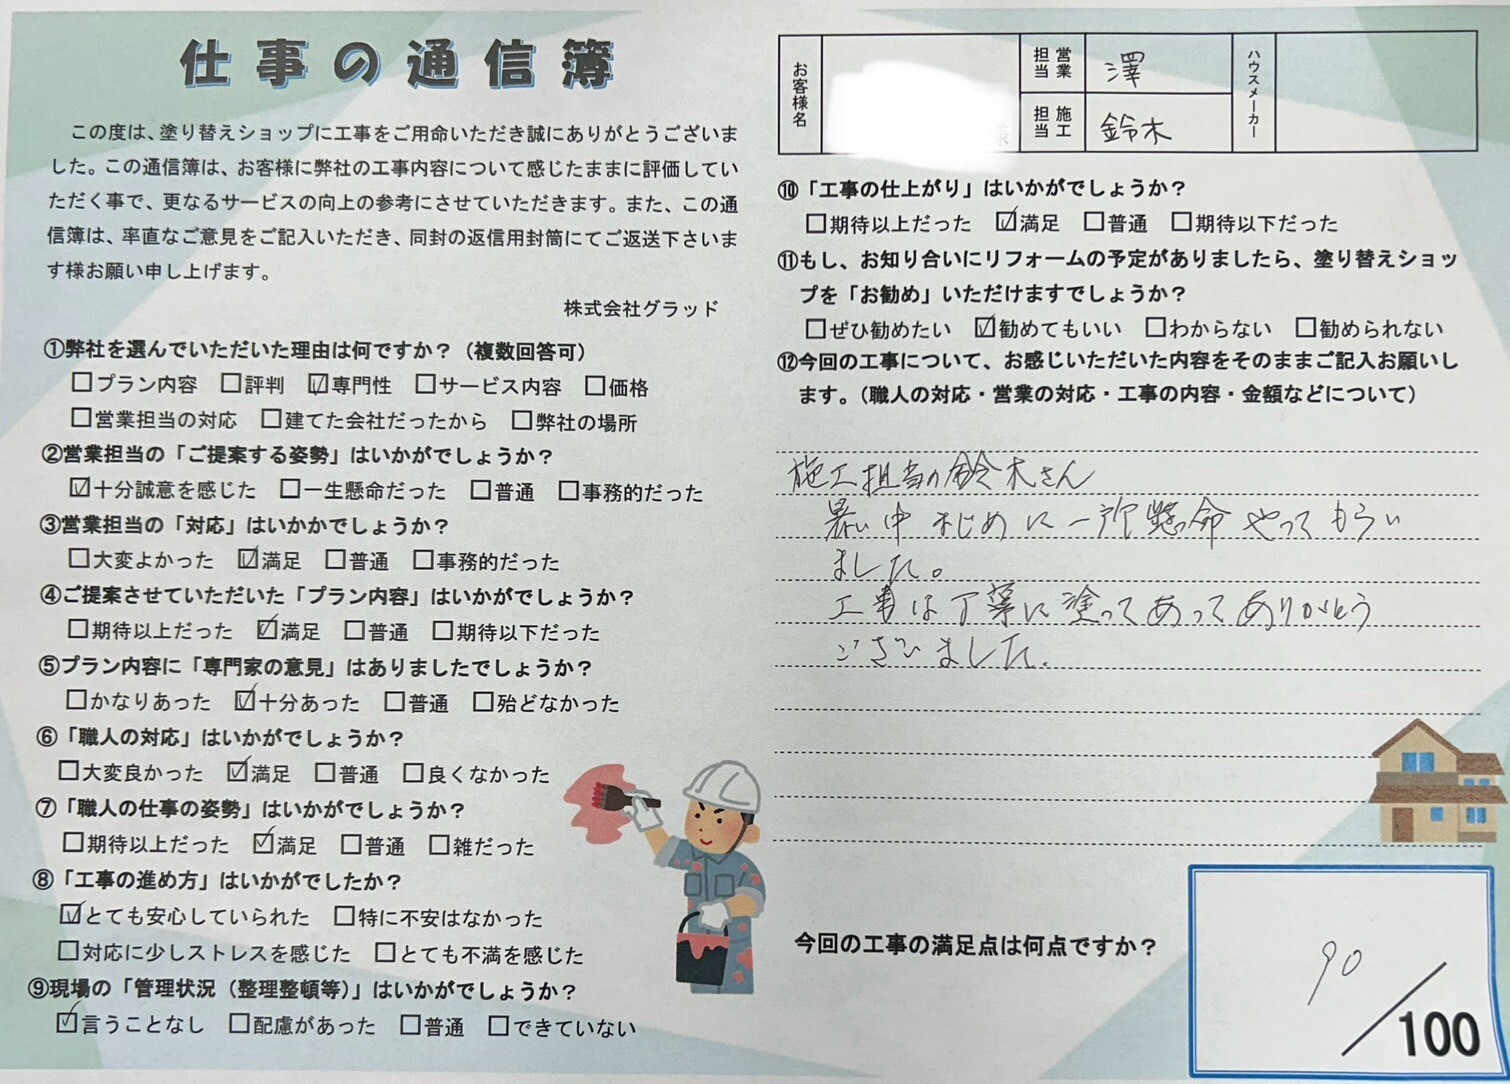 仕事の通信簿
この度は、塗り替えショップに工事をご用命いただき誠にありがとうございま
した。この通信簿は、お客様に弊社の工事内容について感じたままに評価してい
ただく事で、更なるサービスの向上の参考にさせていただきます。また、この通
信簿は、率直なご意見をご記入いただき、同封の返信用封筒にてご返送下さいま
す様お願い申し上げます。
株式会社グラッド
①弊社を選んでいただいた理由は何ですか?（複数回答可）
☐プラン内容 ☐評判 ☑専門性 ☐サービス内容 ☐価格
☐営業担当の対応 ☐建てた会社だったから ☐弊社の場所
②営業担当の「ご提案する姿勢」はいかがでしょうか?
☑十分誠意を感じた ☐一生懸命だった ☐普通 ☐事務的だった
③営業担当の「対応」はいかかでしょうか?
☐大変よかった ☑満足 ☐普通 ☐事務的だった
④ご提案させていただいた「プラン内容」はいかがでしょうか?
☐期待以上だった ☑満足 ☐普通 ☐期待以下だった
⑤プラン内容に「専門家の意見」はありましたでしょうか?
☐かなりあった ☑十分あった ☐普通 ☐殆どなかった
⑥「職人の対応」はいかがでしょうか?
☐大変良かった ☑満足 ☐普通 ☐良くなかった
⑦「職人の仕事の姿勢」はいかがでしょうか?
☐期待以上だった ☑満足 ☐普通 ☐雑だった
⑧「工事の進め方」はいかがでしたか?
☑とても安心していられた ☐特に不安はなかった
☐対応に少しストレスを感じた ☐とても不満を感じた
⑨現場の「管理状況（整理整頓等）」はいかがでしょうか?
☑言うことなし ☐配慮があった ☐普通 ☐できていない
お客様名 様
営業担当 澤
施工担当 鈴木
ハウスメーカー
⑩「工事の仕上がり」はいかがでしょうか?
☐期待以上だった ☑満足 ☐普通 ☐期待以下だった
⑪もし、お知り合いにリフォームの予定がありましたら、塗り替えショッ
プを「お勧め」いただけますでしょうか?
☐ぜひ勧めたい ☑勧めてもいい ☐わからない ☐勧められない
⑫今回の工事について、お感じいただいた内容をそのままご記入お願いし
ます。（職人の対応・営業の対応・工事の内容・金額などについて）
施工担当の鈴木さん
暑い中まじめに一所懸命やってもらい
ました。
工事は丁寧に塗ってあってありがとう
ございました.
今回の工事の満足点は何点ですか?
90/100